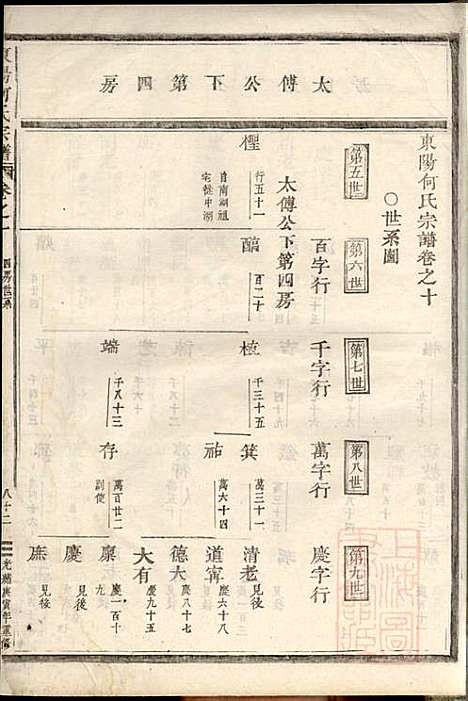 太傅公下第四房
東陽何氏宗譜卷之十
○世系圖
第五世
第六世
第七世
第八世
第九世
百字行
千字行
萬字行
慶字行
太傅公下第四房
行五十一
自南湖祖
宅徙中湖
百二十
千三十五
端
千八十三
箕
萬三十一
祐
萬六十四
存
萬百廿二
副使
清老
見後
道甯
慶六十八
德大
慶八十七
大有
慶九十五
稟
慶一百十
九
慶
見後
庶
見後
東陽何氏宗譜
卷之十
四房世系
八十二
光緒庚寅年重修